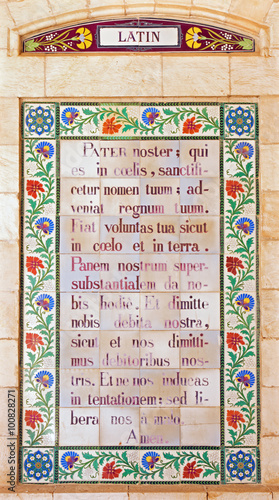 LATIN
PATER noster; qui
es in cœlis, sanctifi-
cetur nomen tuum; ad-
veniat regnum tuum.
Fiat voluntas tua sicut
in cœlo et in terra.
Panem nostrum super-
substantialem da no-
bis hodiē. Et dimitte
nobis debita nostra,
sicut et nos dimitti-
mus debitoribus nos-
tris. Et ne nos inducas
in tentationem: sed li-
bera nos a malo.
Amen.
Adobe Stock | #100828271